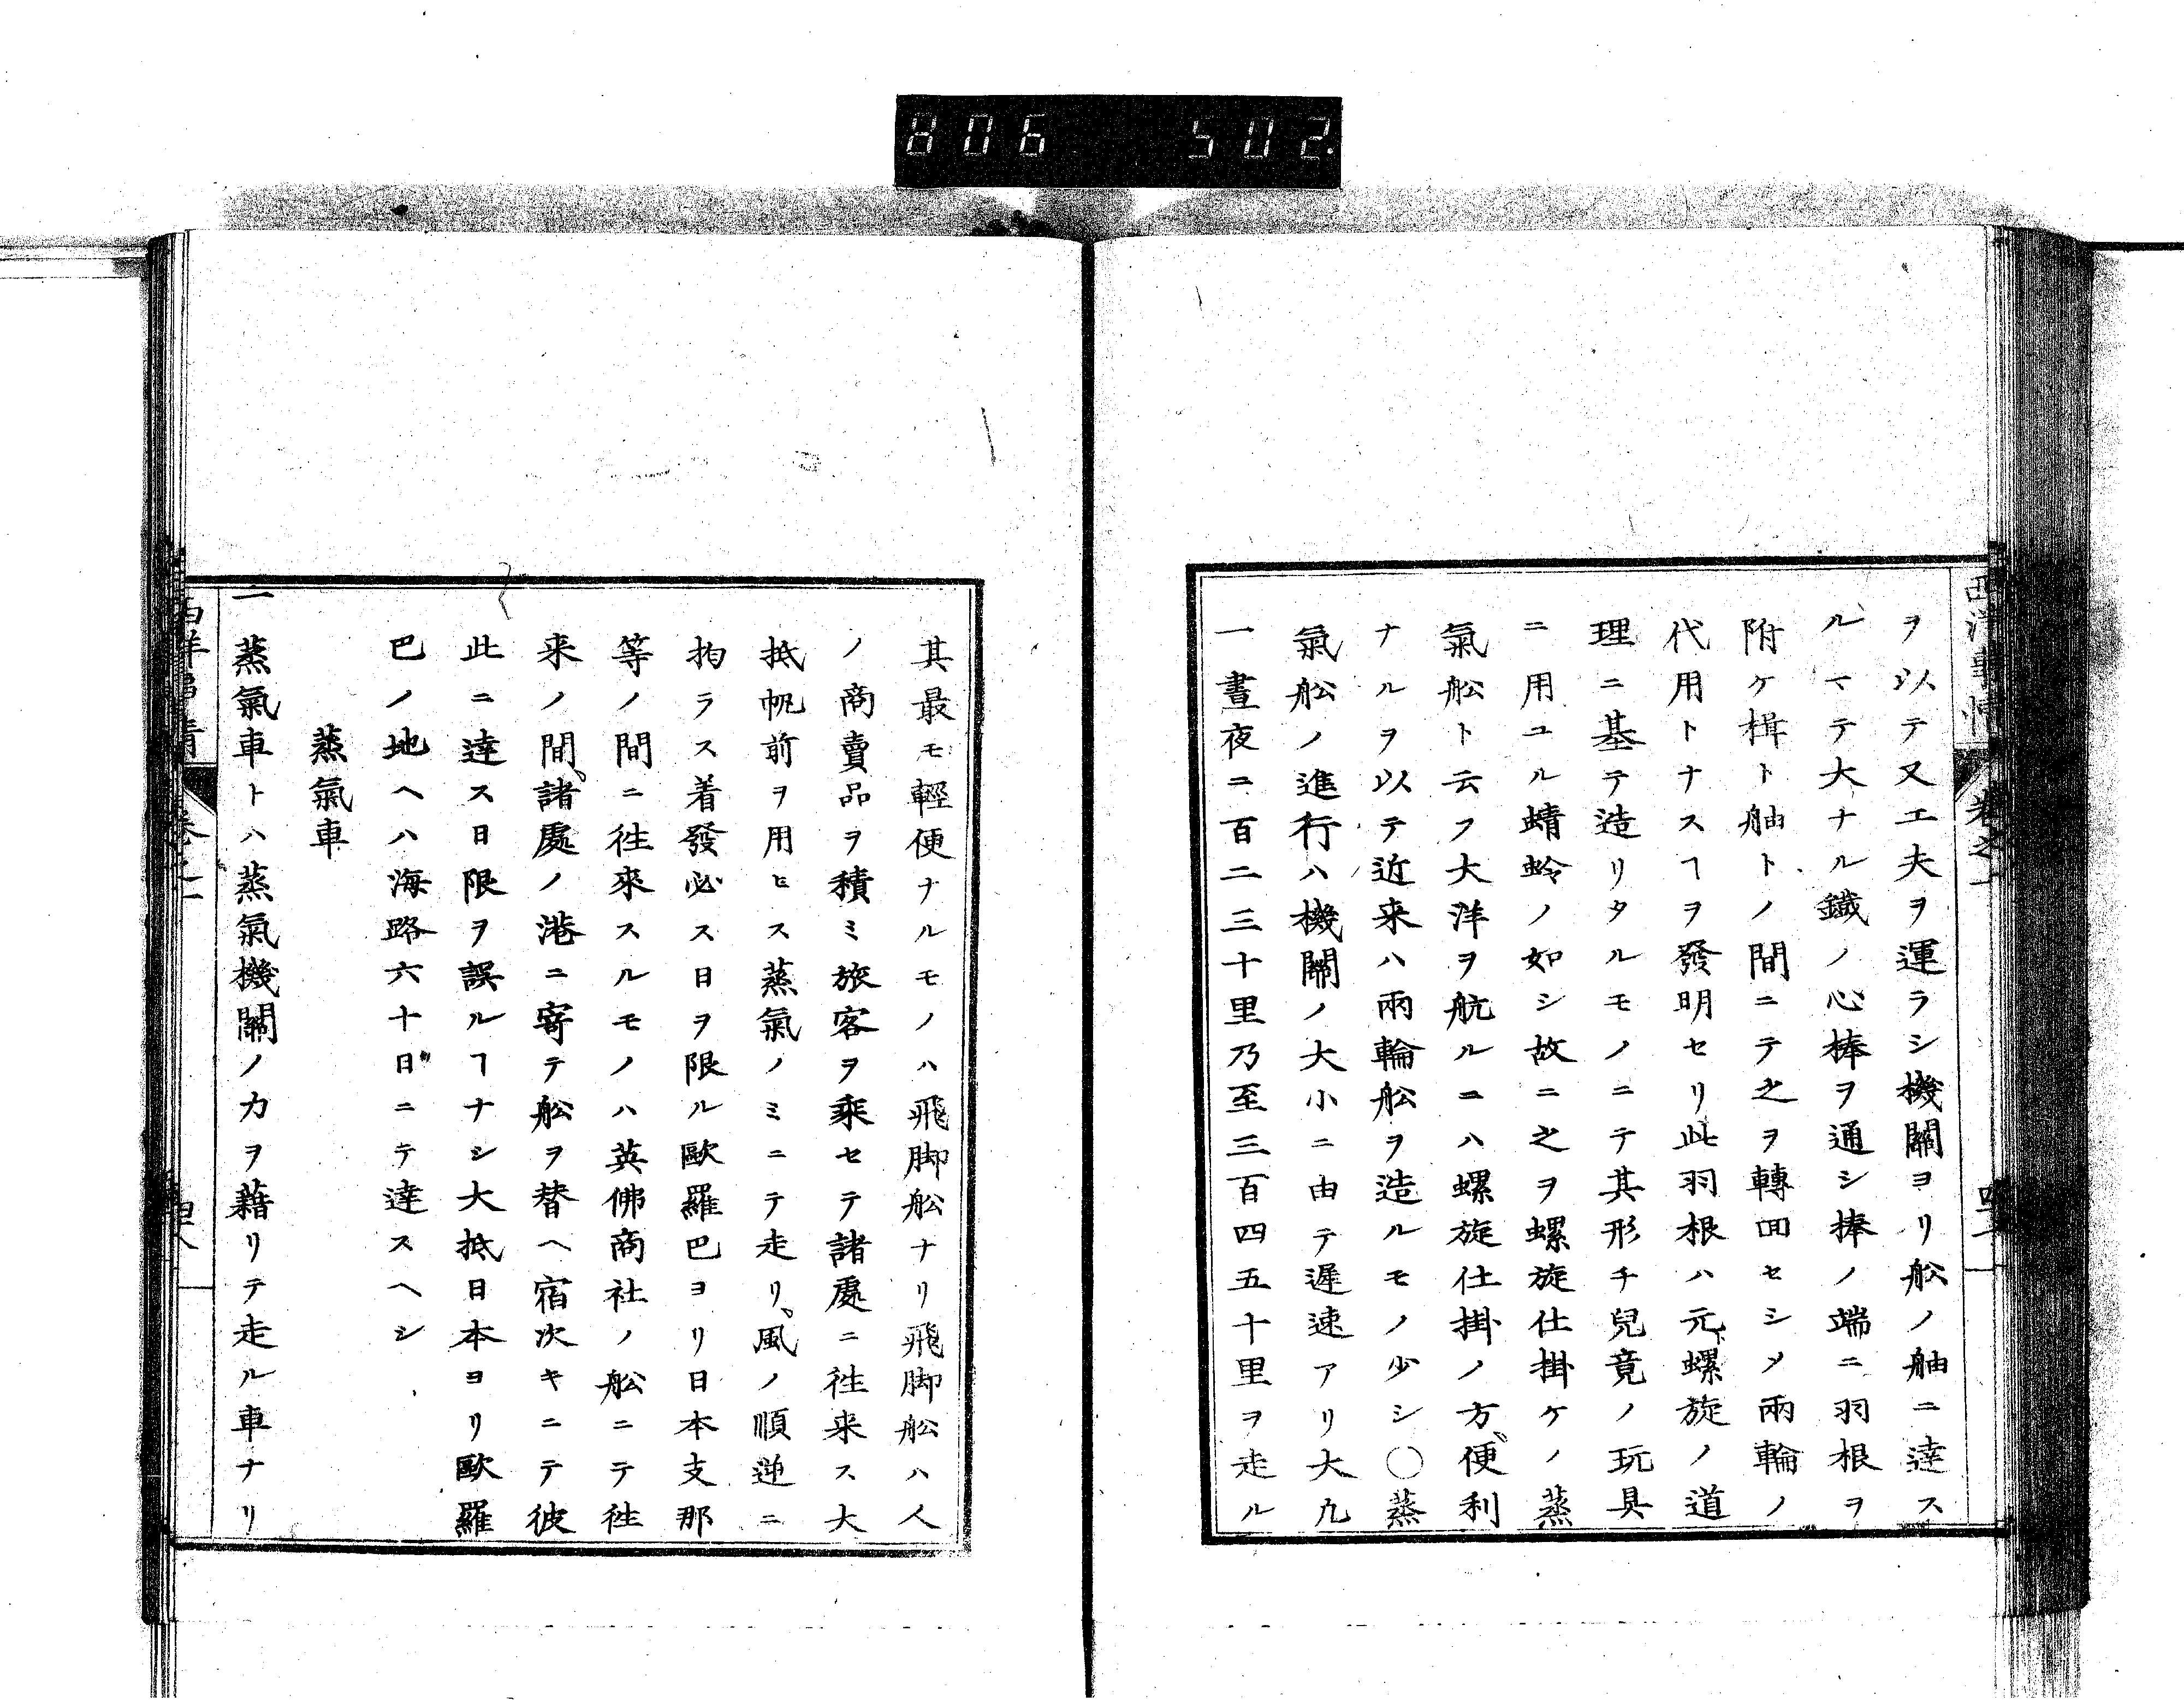 806 502.
ヲ以テ又工夫ヲ運ラシ機關ヨリ舩ノ舳ニ達ス
ルマテ大ナル鐵ノ心棒ヲ通シ棒ノ端ニ羽根ヲ
附ケ楫ト舳トノ間ニテ之ヲ轉回セシメ兩輪ノ
代用トナスヿヲ發明セリ此羽根ハ元ト螺旋ノ道
理ニ基テ造リタルモノニテ其形チ兒竟ノ玩具
ニ用ユル蜻蛉ノ如シ故ニ之ヲ螺旋仕掛ケノ蒸
氣舩ト云フ大洋ヲ航ルニハ螺旋仕掛ノ方、便利
ナルヲ以テ近来ハ兩輪舩ヲ造ルモノ少シ○蒸
氣舩ノ進行ハ機關ノ大小ニ由テ遲速アリ大凡
一晝夜ニ百二三十里乃至三百四五十里ヲ走ル
其最モ輕便ナルモノハ飛脚舩ナリ飛脚舩ハ人
ノ商賣品ヲ積ミ旅客ヲ乘セテ諸處ニ徃来ス大
抵帆前ヲ用ヒス蒸氣ノミニテ走リ、風ノ順逆ニ
拘ラス着發必ス日ヲ限ル歐羅巴ヨリ日本支那
等ノ間ニ徃來スルモノハ英佛商社ノ舩ニテ徃
来ノ間、諸處ノ港ニ寄テ舩ヲ替ヘ宿次キニテ彼
此ニ達ス日限ヲ誤ルヿナシ大抵日本ヨリ歐羅
巴ノ地ヘハ海路六十日ニテ達スヘシ
蒸氣車
一蒸氣車トハ蒸氣機關ノ力ヲ藉リテ走ル車ナリ